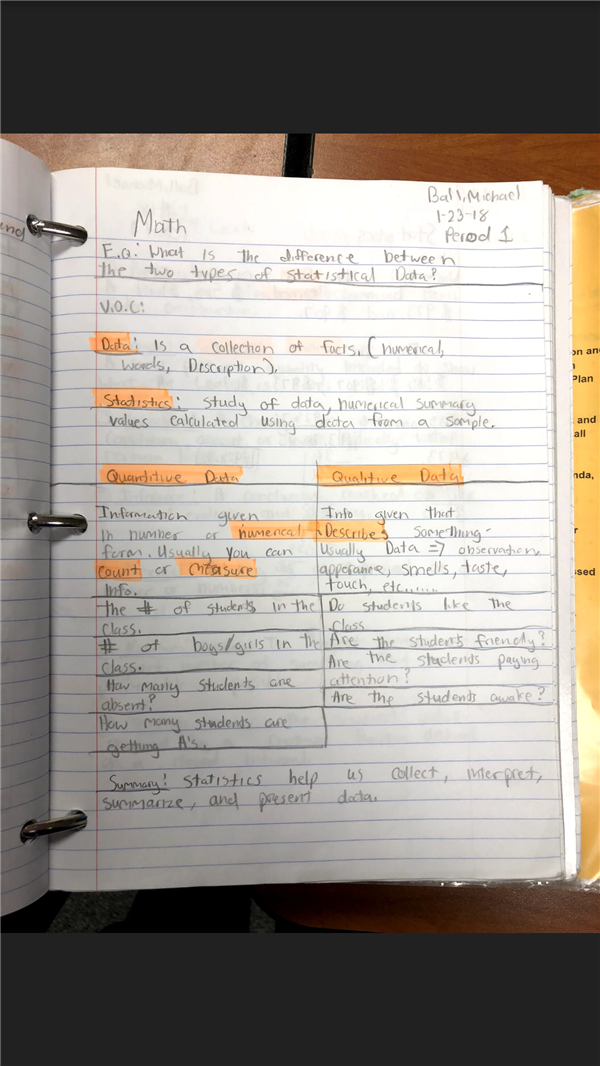 Ball, Michael
1-23-18
Perod 1
Math
E.Q: What is the difference between
the two types of statistical Data?
V.O.C:
Data: Is a collection of facts. (numerical,
words, Description).
Statistics: study of data, numerical summary
values calculated using data from a sample.
Quantitive Data
Information given
in number or numerical
form. Usually you can
count or measure
Info.
The # of students in the
class.
# of boys/girls in the
class.
How many students are
absent?
How many students are
getting A's.
Qualitive Data
Info given that
Describes something-
Usually Data => observation,
apperance, smells, taste,
touch, etc......
Do students like the
class
Are the students friendly?
Are the students paying
attention?
Are the students awake?
Summary: statistics help us collect, interpret,
summarize, and present data.
and
on and
Plan
and
all
nda,
r
ssed